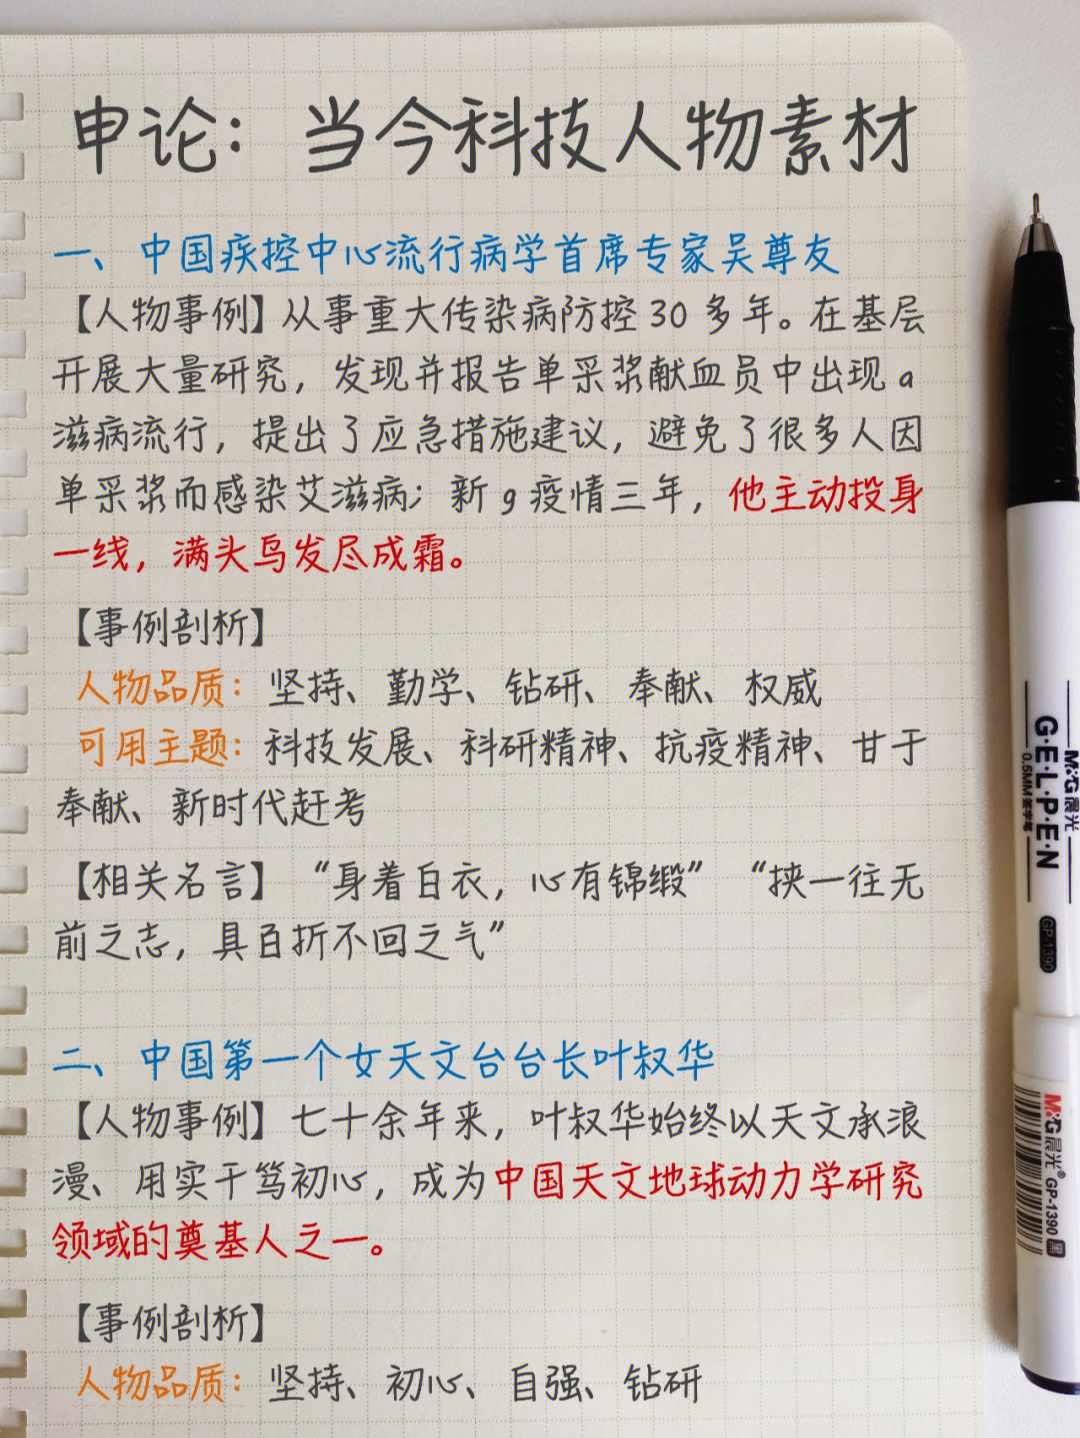 申论：当今科技人物素材
一、中国疾控中心流行病学首席专家吴尊友
【人物事例】从事重大传染病防控30多年。在基层
开展大量研究，发现并报告单采浆献血员中出现a
滋病流行，提出了应急措施建议，避免了很多人因
单采浆而感染艾滋病；新g疫情三年，他主动投身
一线，满头乌发尽成霜。
【事例剖析】
人物品质：坚持、勤学、钻研、奉献、权威
可用主题：科技发展、科研精神、抗疫精神、甘于
奉献、新时代赶考
【相关名言】“身着白衣，心有锦缎”“挟一往无
前之志，具百折不回之气”
二、中国第一个女天文台台长叶叔华
【人物事例】七十余年来，叶叔华始终以天文承浪
漫、用实干笃初心，成为中国天文地球动力学研究
领域的奠基人之一。
【事例剖析】
人物品质：坚持、初心、自强、钻研
M&G晨光
G·E·L·P·E·N
0.5MM签字笔
GP-1390
M&G晨光® GP-1390 黑